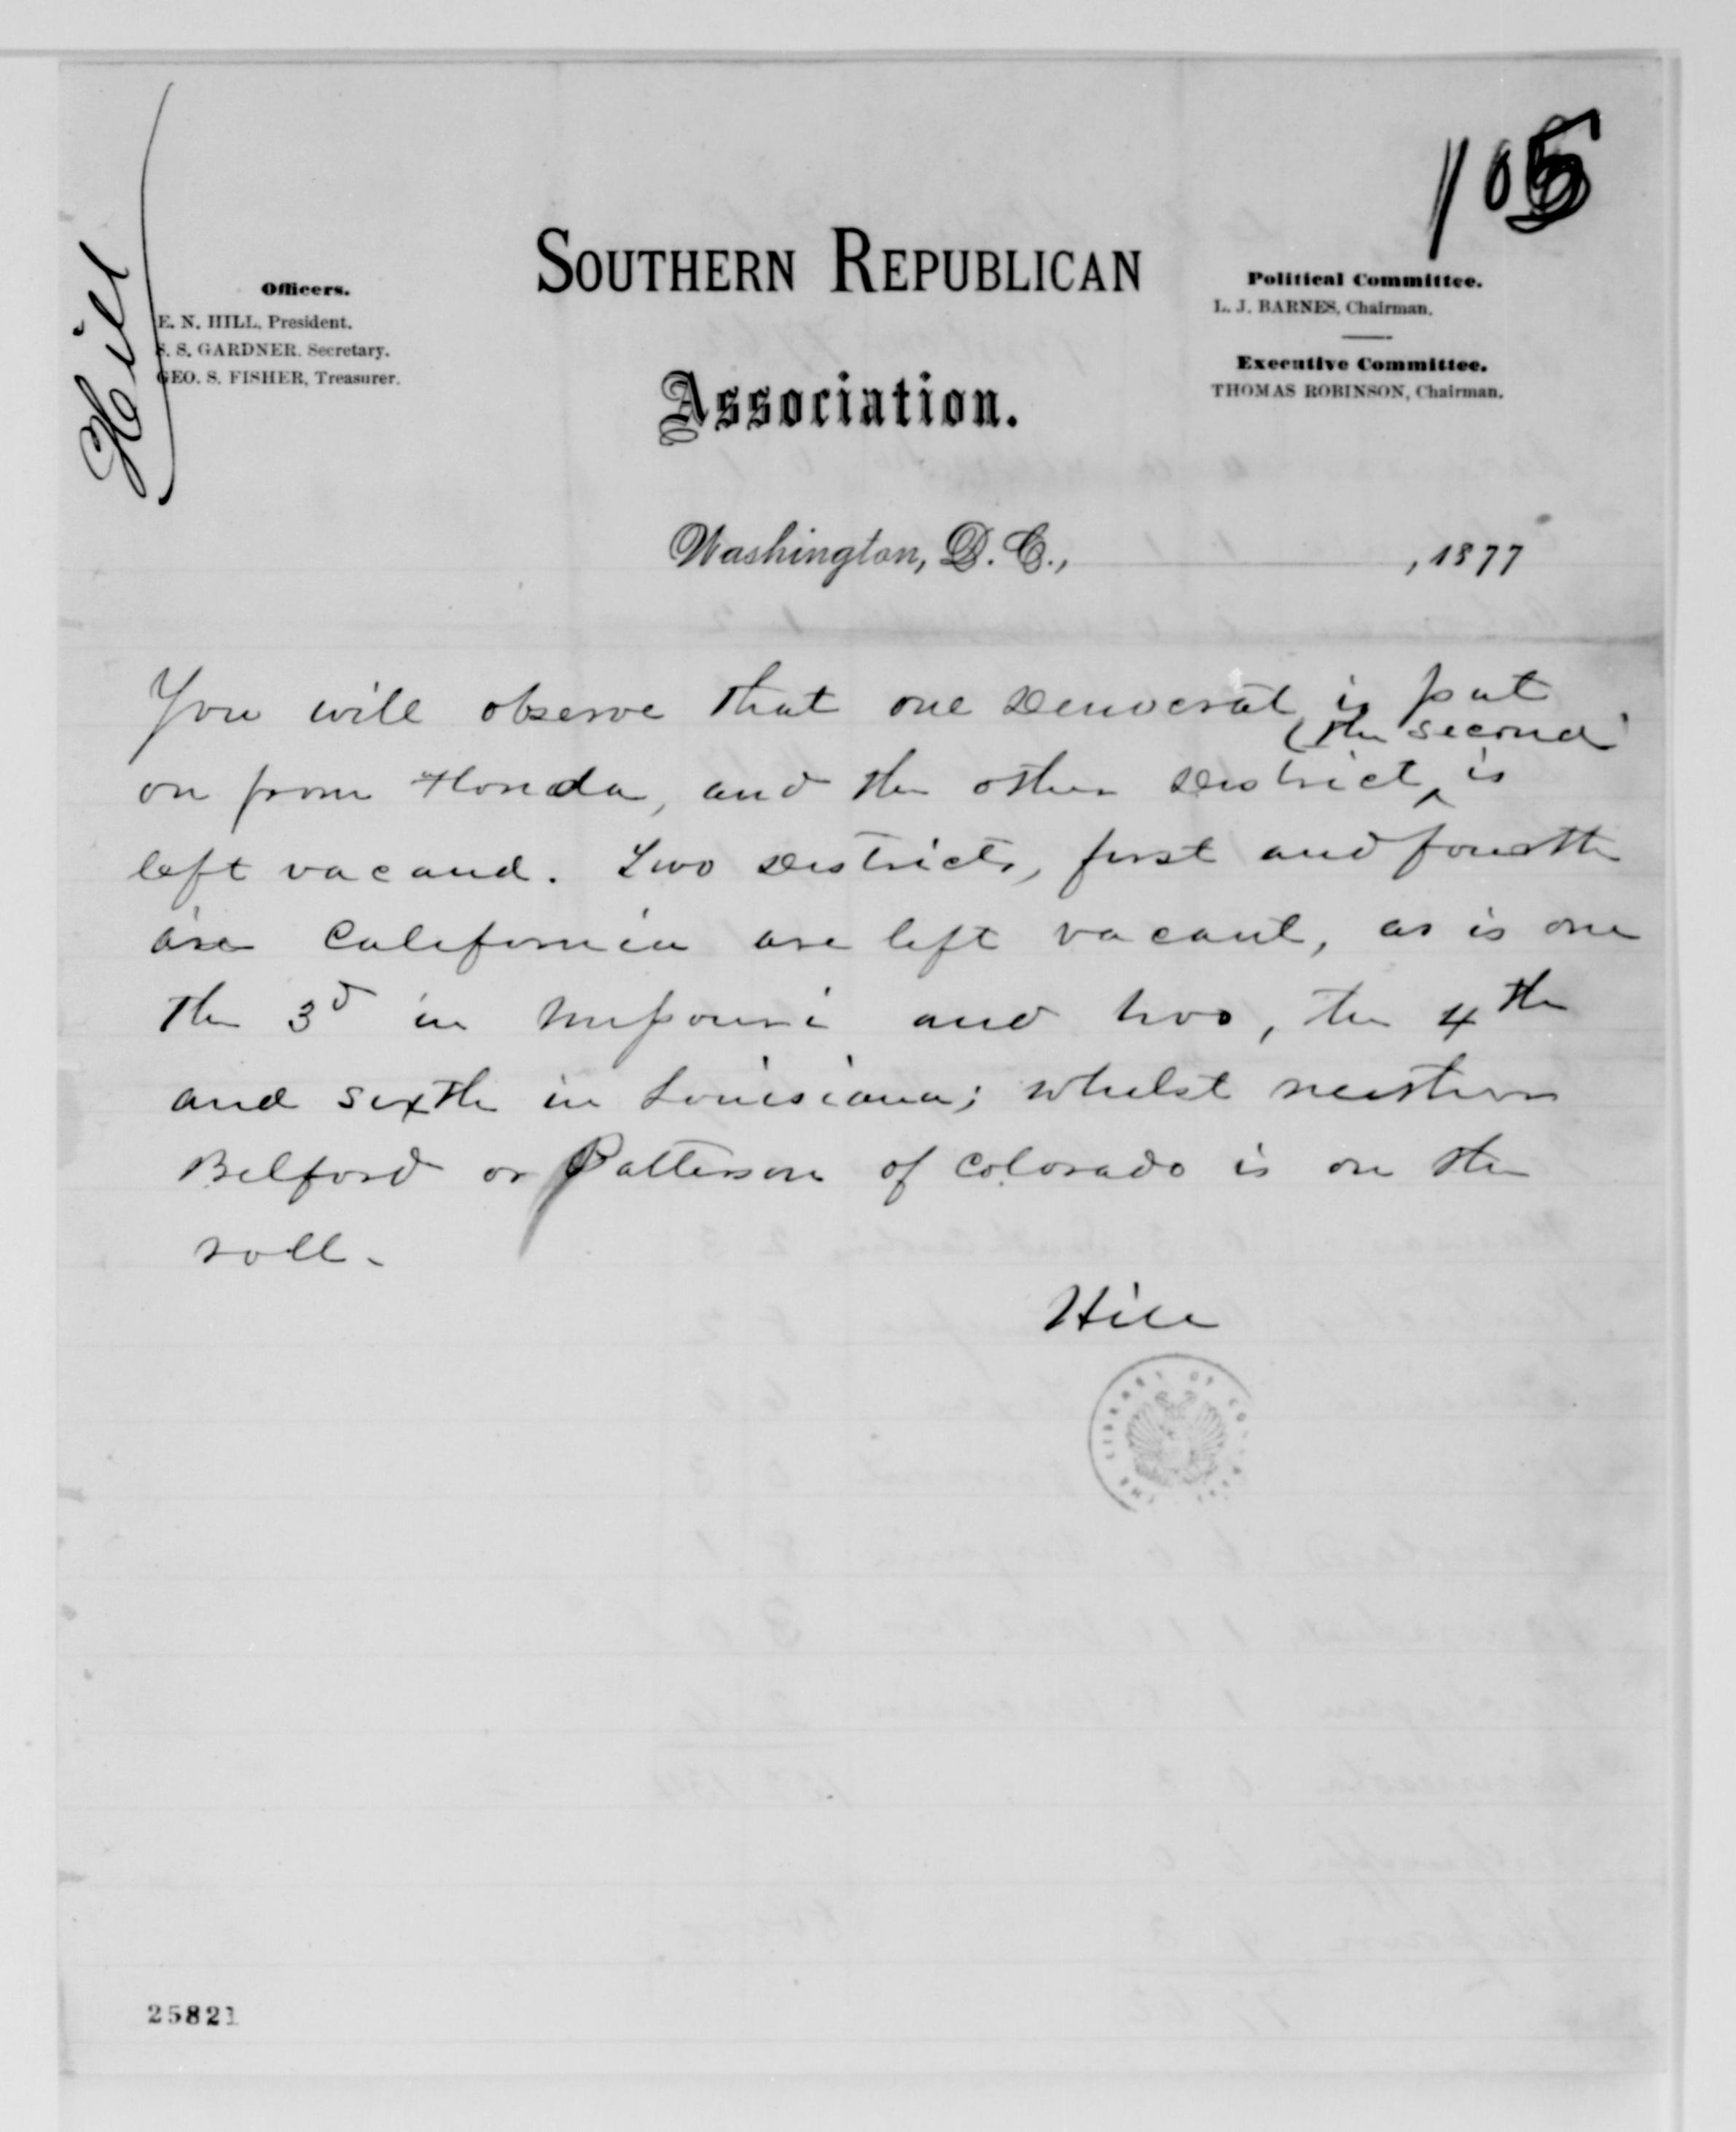 Hill
105
Officers.
E. N. HILL, President.
S. S. GARDNER. Secretary.
GEO. S. FISHER, Treasurer.
SOUTHERN REPUBLICAN
Association.
Political Committee.
L. J. BARNES, Chairman.
Executive Committee.
THOMAS ROBINSON, Chairman.
Washington, D. C., , 1877
You will observe that one Democrat is put
(the second
on from Florida, and the other District ^ is
left vacand. Two Districts, first and fourth
are California are left vacant, as is one
the 3d in Missouri and two, the 4th
and sixth in Louisiana; whilst neither
Belford or Patterson of Colorado is on the
roll.
Hill
THE LIBRARY OF CO
25821